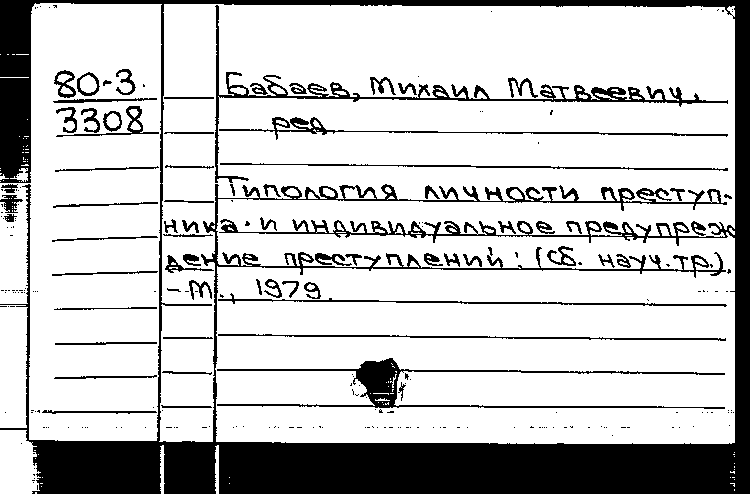 80-3. Бабаев, Михаил Матвеевич.
3308 ред
Типология личности преступ-
ника и индивидуальное предупреж
дение преступлений: (сб. науч. тр.).
- М., 1979.